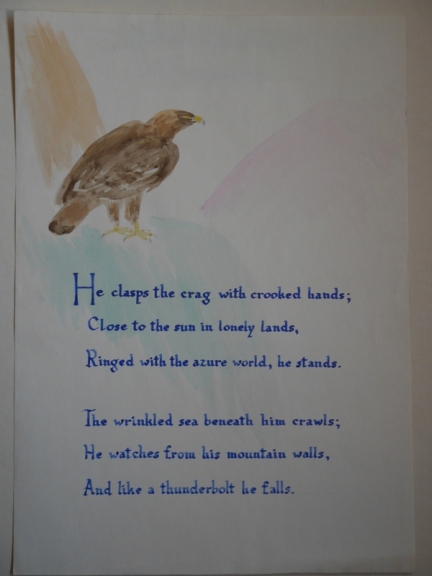 He clasps the crag with crooked hands;
Close to the sun in lonely lands,
Ringed with the azure world, he stands.
The wrinkled sea beneath him crawls;
He watches from his mountain walls,
And like a thunderbolt he falls.